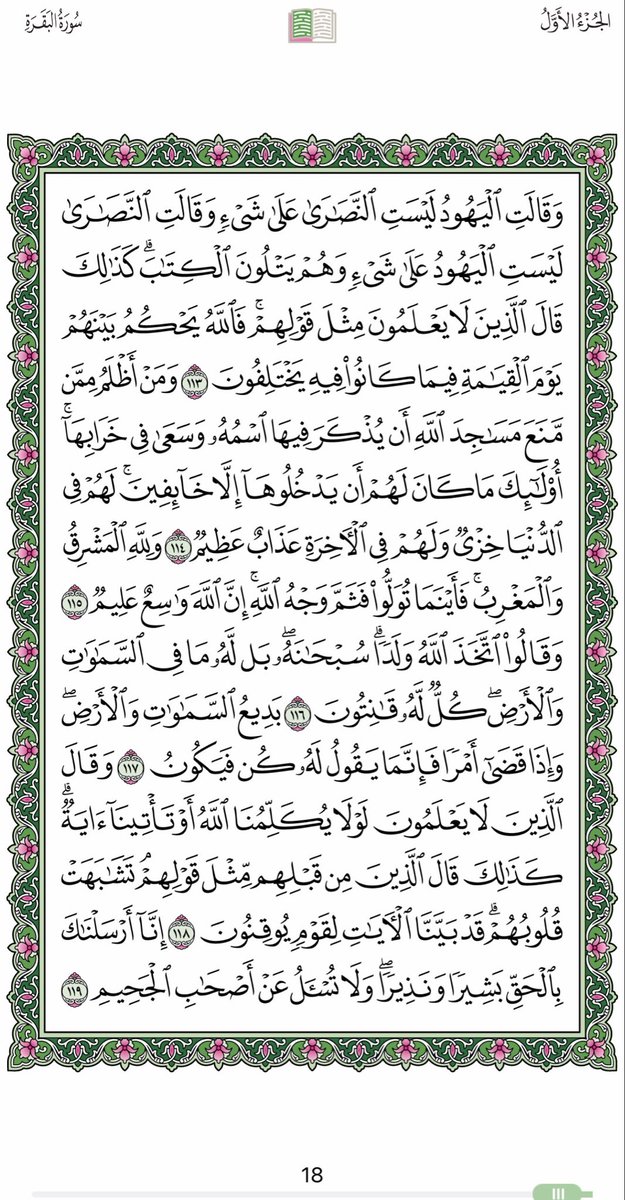 الجُزْءُ الأَوَّلُ
سُورَةُ البَقَرَةِ
وَقَالَتِ ٱلۡيَهُودُ لَيۡسَتِ ٱلنَّصَٰرَىٰ عَلَىٰ شَيۡءٖ وَقَالَتِ ٱلنَّصَٰرَىٰ
لَيۡسَتِ ٱلۡيَهُودُ عَلَىٰ شَيۡءٖ وَهُمۡ يَتۡلُونَ ٱلۡكِتَٰبَۗ كَذَٰلِكَ
قَالَ ٱلَّذِينَ لَا يَعۡلَمُونَ مِثۡلَ قَوۡلِهِمۡۚ فَٱللَّهُ يَحۡكُمُ بَيۡنَهُمۡ
يَوۡمَ ٱلۡقِيَٰمَةِ فِيمَا كَانُواْ فِيهِ يَخۡتَلِفُونَ ١١٣ وَمَنۡ أَظۡلَمُ مِمَّن
مَّنَعَ مَسَٰجِدَ ٱللَّهِ أَن يُذۡكَرَ فِيهَا ٱسۡمُهُۥ وَسَعَىٰ فِي خَرَابِهَآۚ
أُوْلَٰٓئِكَ مَا كَانَ لَهُمۡ أَن يَدۡخُلُوهَآ إِلَّا خَآئِفِينَۚ لَهُمۡ فِي
ٱلدُّنۡيَا خِزۡيٞ وَلَهُمۡ فِي ٱلۡأٓخِرَةِ عَذَابٌ عَظِيمٞ ١١٤ وَلِلَّهِ ٱلۡمَشۡرِقُ
وَٱلۡمَغۡرِبُۚ فَأَيۡنَمَا تُوَلُّواْ فَثَمَّ وَجۡهُ ٱللَّهِۚ إِنَّ ٱللَّهَ وَٰسِعٌ عَلِيمٞ ١١٥
وَقَالُواْ ٱتَّخَذَ ٱللَّهُ وَلَدٗاۗ سُبۡحَٰنَهُۥۖ بَل لَّهُۥ مَا فِي ٱلسَّمَٰوَٰتِ
وَٱلۡأَرۡضِۖ كُلّٞ لَّهُۥ قَٰنِتُونَ ١١٦ بَدِيعُ ٱلسَّمَٰوَٰتِ وَٱلۡأَرۡضِۖ
وَإِذَا قَضَىٰٓ أَمۡرٗا فَإِنَّمَا يَقُولُ لَهُۥ كُن فَيَكُونُ ١١٧ وَقَالَ
ٱلَّذِينَ لَا يَعۡلَمُونَ لَوۡلَا يُكَلِّمُنَا ٱللَّهُ أَوۡ تَأۡتِينَآ ءَايَةٞۗ
كَذَٰلِكَ قَالَ ٱلَّذِينَ مِن قَبۡلِهِم مِّثۡلَ قَوۡلِهِمۡۘ تَشَٰبَهَتۡ
قُلُوبُهُمۡۗ قَدۡ بَيَّنَّا ٱلۡأٓيَٰتِ لِقَوۡمٖ يُوقِنُونَ ١١٨ إِنَّآ أَرۡسَلۡنَٰكَ
بِٱلۡحَقِّ بَشِيرٗا وَنَذِيرٗاۖ وَلَا تُسۡـَٔلُ عَنۡ أَصۡحَٰبِ ٱلۡجَحِيمِ ١١٩
18